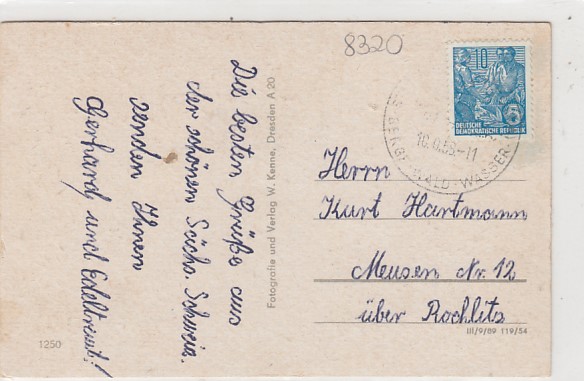 8320
Die besten Grüße aus
der schönen Sächs. Schweiz.
senden Ihnen
Gerhard und Edeltraut!
Fotografie und Verlag W. Kenne, Dresden A 20
10
DEUTSCHE
DEMOKRATISCHE REPUBLIK
-11
WALD-WASSER-
Herrn
Kurt Hartmann
Meusen Nr. 12
über Rochlitz
III/9/89 119/54
1250